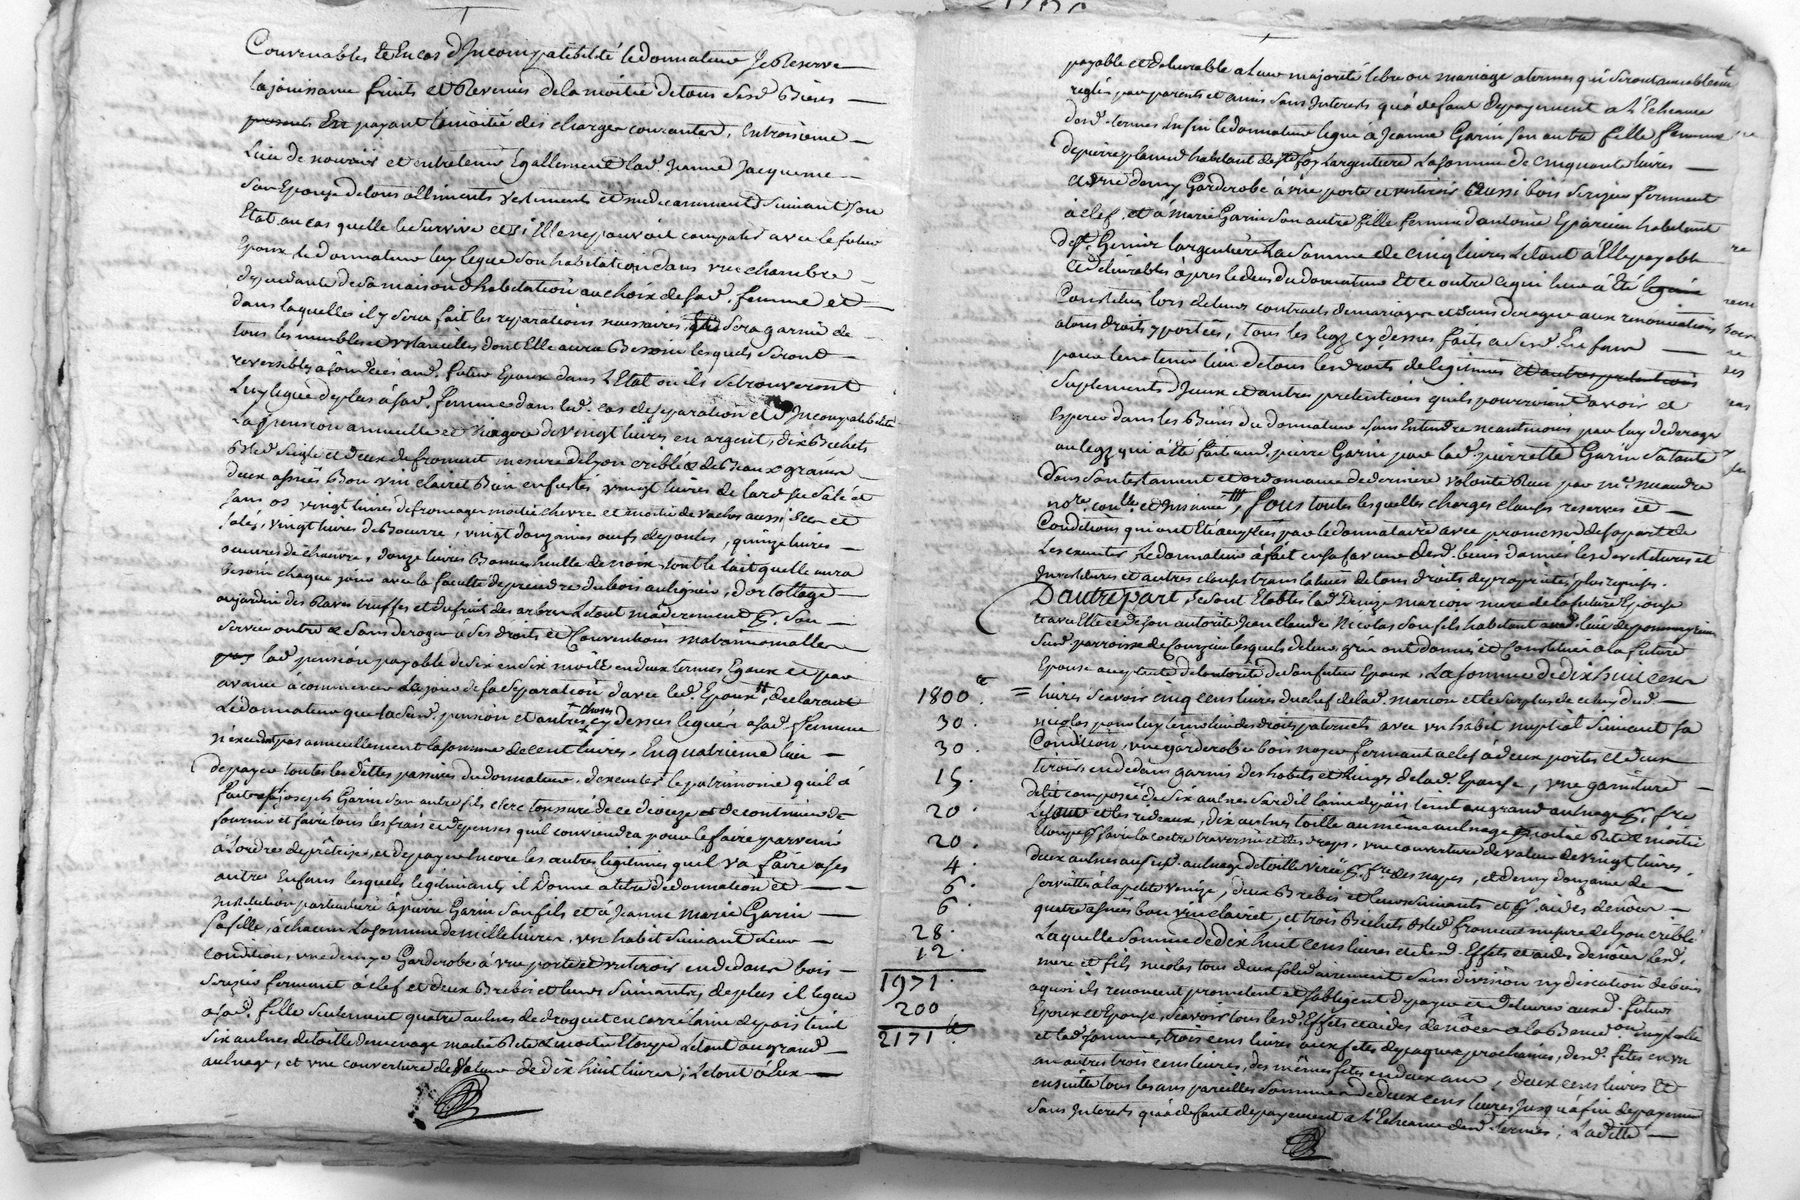 Convenables Et En cas d'Incompatibilité le donnateur Se Reserve
la jouissance fruits et Revenus de la moitié de tous Sesd. Biens
presents En payant la moitié des charges courantes, En troisieme
Lieu de nourrir et entretenir Egallement lad. Jeanne Jacqueme
Son Epouse de tous alliments vestiments et medicamments Suivant Son
Etat au cas quelle le Survive et Si Elle ne pouvoit compatir avec le futur
Epoux le donnateur luy legue Son habitation dans une chambre
dependante de Sa maison d'habitation au choix de Sad. femme et
dans laquelle il y Sera fait les reparations necessaires, Sera garnie de
tous les meubles et ustancilles dont Elle aura Besoin lesquels Seront
reversibles à Son deces aud. futur Epoux dans l'Etat ou ils Se trouveront
Luy legue de plus à Sad. femme dans led. cas de Separation et d'Incompatibilité
La pension annuelle et viagere de vingt livres en argent, dix Bichets
Bled Seigle et deux de froment mesure de Lyon criblé de Beaux grains
deux asnées Bon vin clairet Bien enfusté, vingt livres de lard Sec Salé et
Sans os, vingt livres de fromages moitié chevre et moitié de vaches aussi Sec et
Salés, vingt livres de Beurre, vingt douzaines oeufs de poules, quinze livres
oeuvres de chanvre, douze livres Bonne huille de noix, tout le lait quelle aura
Besoin chaque jour avec la faculté de prendre du bois au ligner, d'ortollage
au jardin des Raves truffes et du fruit des arbres Le tout moderement pr. Son
Service outre & Sans deroger à Ses droits et Conventions matrimonialles
lad. pension payable de Six en Six mois en deux termes Egaux et par
avance à commencer du jour de Sa Separation d'avec led. Epoux, declarant
Le donnateur que lasusd. pension et autres choses cy dessus leguées a Sad. femme
n'excedent pas annuellement la Somme de cent livres. En quatrieme lieu
de payer toutes les dettes passives du donnateur, d'executer le patrimoine quil à
fait a Sr. joseph Garin Son autre fils clerc tonsuré de ce diocese et de continuer de
fournir et faire tous les frais et depenses quil conviendra pour le faire parvenir
à l'ordre de prêtrise, et de payer Encore les autres legitimes quil va faire a Ses
autres Enfans lesquels legitimants il donne a titre de donnation et
Institution particuliere à pierre Garin Son fils et à Jeanne Marie Garin
Sa fille, à chacun La Somme de mille livres, un habit Suivant Leur
condition, une demye Garderobe à une porte et un tiroir en dedans bois
Serizier fermant à clef et deux Brebis et leurs Suivantes, de plus il legue
a Sad. fille Seulement quatre aulnes de droguet en carré laine de pais teint
Six aulnes de toille de menage moitié Rite & moitié Etoupe Le tout au grand
aulnage, et une couverture de Valeur de dix huit livres, Le tout à Eux
payable et delivrable a Leur majorité libre ou mariage a termes qui Seront amiablement
reglés par parents et amis Sans Interets qu'à defaut de payement a l'Echeance
desd. termes Enfin le donnateur legue à Jeanne Garin Son autre fille femme
de pierre habitant de Ste foy L'argentiere La Somme de cinquante livres
et une demy Garderobe à une porte et un tiroir aussi bois Serizier fermant
à clef, et à Marie Garin Son autre fille femme d'antoine Eparcieu habitant
de St. Genis L'argentiere La Somme de cinq livres Le tout à Elle payable
et delivrables après le deces du donnateur Et ce outre ce qui leur à Eté
Constitué lors de leurs contracts de mariage et Sans deroger aux renonciations
a tous droits y portées, tous les legs cy dessus faits a Sesd. Enfans
pour leur tenir lieu de tous les droits de legitimes et autres pretentions
Suplements d'Iceux et autres pretentions quils pourroient avoir et
Esperer dans les Biens du donnateur Sans Entendre neantmoins par luy deroger
au legs qui à Eté fait aud. pierre Garin par lad. pierrette Garin Sa tante
dans Son testament et ordonnance de derniere volonté Reçu par Me.
nore. Sous toutes lesquelles charges clauses reserves et
Conditions qui ont Eté acceptées par le donnataire avec promesse de Sa part de
Les executer Le donnateur à fait en Sa faveur desd. biens donnés les devestitures et
Investitures et autres clauses translatives de tous droits de proprieté plus requises.
D'autre part, Se Sont Etablis lad. Denize marcion mere de la future Epouse
et avec Elle et de Son autorité Jean Claude Nicolas Son fils habitant aud. lieu de pommeyrieu
Susd. parroisse de Courzieu lesquels de leur gré ont donnés et Constitués à la future
Epouse acceptante de l'autorité de Son futur Epoux, La Somme de dix huit cens
1800 tt = livres Scavoir cinq cens livres du chef de lad. marcion et le Surplus de celuy dud.
30. nicolas pour luy tenir lieu des droits paternels avec un habit nuptial Suivant Sa
30. Condition, une garderobe bois noyer fermant a clef à deux portes et deux
15. tiroirs en dedans garnis des habits et Linges de lad. Epouse, une garniture
20. de lit composée de Six aulnes Sardil laine de païs teint au grand aulnage pr. fre
20. Le tour et les rideaux, dix aulnes toille au même aulnage moitié Rite & moitié
Etoupe pr. faire la coetre traversin et les draps, une couverture de valeur de vingt livres,
4. deux aulnes au Susd. aulnage de toille pr. fre des napes, et demy douzaine de
6. Serviettes à la petite Venise, deux Brebis et leurs Suivants et pr. aides de nôces
6. quatre asnées bon vin clairet, et trois Bichets Bled froment mesure de Lyon criblé
28. Laquelle Somme de dix huit cens livres et Sesd. Effets et aides de nôces lesd.
12. mere et fils nicolas tous deux Solidairement Sans division ny discution de biens
1971. a quoi ils renoncent promettent et S'obligent de payer et delivrer auxd. futurs
200 Epoux et Epouse, Scavoir tous lesd. Effets et aides de nôces a la Bened.on nuptialle
2171 tt. et lad. Somme, trois cens livres aux fêtes de paques prochaines, desd. fêtes en un
an autres trois cens livres, des mêmes fêtes en deux ans, deux cens livres Et
ensuite tous les ans pareilles Sommes de deux cens livres Jusqu'à fin de payement
Sans Interets qu'à defaut de payement a l'Echeance desd. termes; Laditte